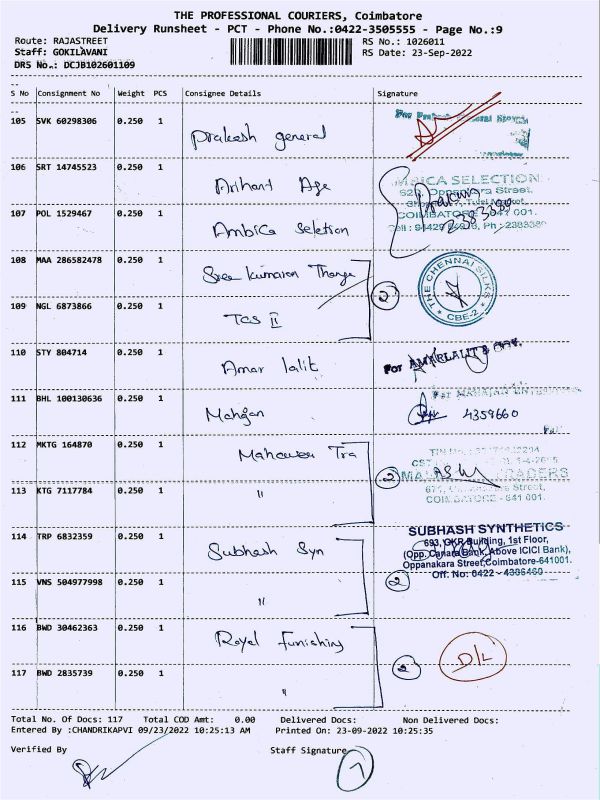 THE PROFESSIONAL COURIERS, Coimbatore
Delivery Runsheet - PCT - Phone No.:0422-3505555 - Page No.:9
Route: RAJASTREET
RS No.: 1026011
Staff: GOKILAVANI
RS Date: 23-Sep-2022
DRS No.: DCJB102601109
S No Consignment No Weight PCS Consignee Details Signature
105 SVK 60298306 0.250 1
Prakash general
106 SRT 14745523 0.250 1
Arihant Age
MBICA SELECTION
Oppankara Street,
107 POL 1529467 0.250 1
Ambica Seletion
COIMBATORE 641 001.
2383389
Ph: 2383389
108 MAA 286582478 0.250 1
Sree Kumaran Thanga
2
THE CHENNAI SILKS
CBE-2
109 NGL 6873866 0.250 1
TCS II
110 STY 804714 0.250 1
Amar lalit
For AMARLALIT
111 BHL 100130636 0.250 1
Mahajan
For MAHAJAN
4359660
112 MKTG 164870 0.250 1
Mahaveer Tra
2
TRADERS
113 KTG 7117784 0.250 1
"
Street,
COIMBATORE - 641 001.
114 TRP 6832359 0.250 1
Subhash Syn
SUBHASH SYNTHETICS
693, GKR Building, 1st Floor,
(Opp. Canara Bank, Above ICICI Bank),
Oppanakara Street, Coimbatore-641001.
Off. No: 0422 - 4386460
115 VNS 504977998 0.250 1
"
2
116 BWD 30462363 0.250 1
Royal Furnishing
2
D/L
117 BWD 2835739 0.250 1
"
Total No. Of Docs: 117 Total COD Amt: 0.00 Delivered Docs: Non Delivered Docs:
Entered By :CHANDRIKAPVI 09/23/2022 10:25:13 AM Printed On: 23-09-2022 10:25:35
Verified By Staff Signature
7